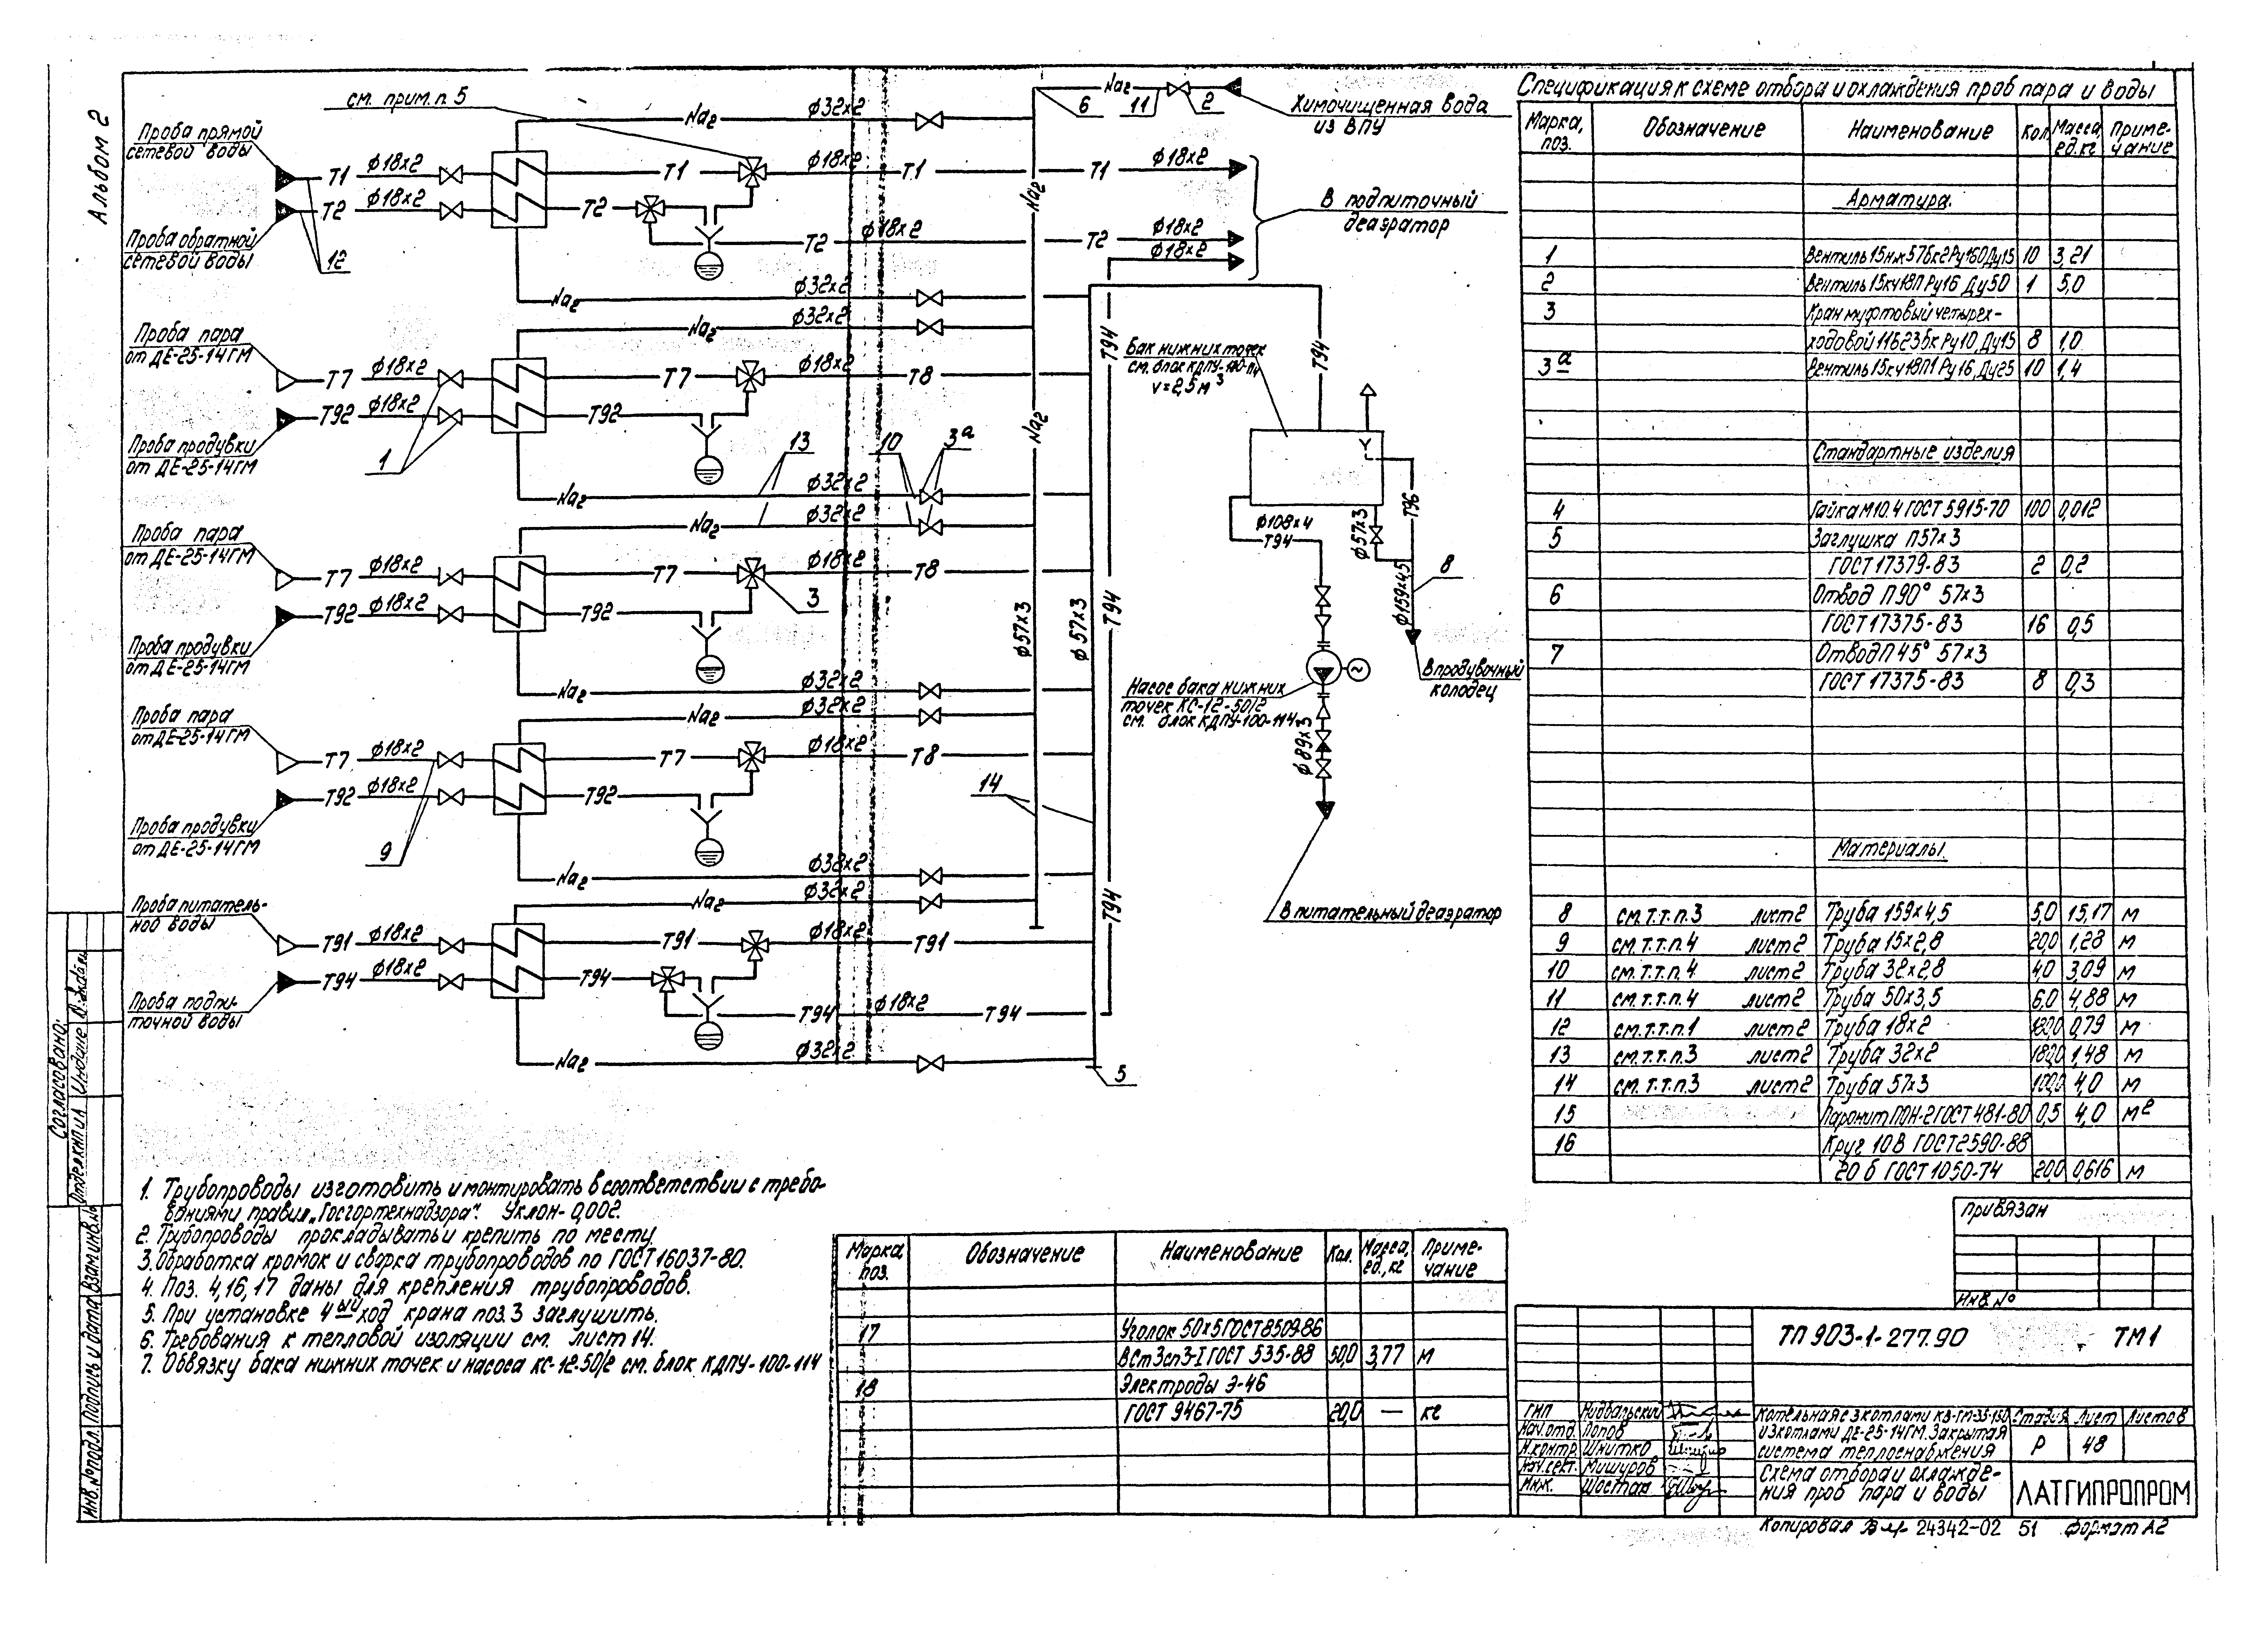 Альбом 2
см. прим. п. 5
Проба прямой
сетевой воды
Т1 ф18×2
Т2 ф18×2
Проба обратной
сетевой воды
12
Na2 ф32×2
Т1 ф18×2 Т1 Т1 ф18×2
Т2 Т2 ф18×2 Т2 ф18×2
ф18×2
Na2 6 11 2
Химочищенная вода
из ВПУ
В подпиточный
деаэратор
Na2 ф32×2
Na2 ф32×2
Проба пара
от ДЕ-25-14ГМ
Т7 ф18×2 Т7 ф18×2 Т8
Т92 ф18×2 Т92
Проба продувки
от ДЕ-25-14ГМ
1
13 10 3а
Na2 ф32×2
Na2 ф32×2
Проба пара
от ДЕ-25-14ГМ
Т7 ф18×2 Т7 ф18×2 Т8
Т92 ф18×2 Т92 3
Проба продувки
от ДЕ-25-14ГМ
Na2 ф32×2
Na2 ф32×2
Проба пара
от ДЕ-25-14ГМ
Т7 ф18×2 Т7 ф18×2 Т8
Т92 ф18×2 Т92
Проба продувки
от ДЕ-25-14ГМ
9
14
Na2 ф32×2
Na2 ф32×2
Проба питатель-
ной воды
Т91 ф18×2 Т91 ф18×2 Т91
Т94 ф18×2 Т94
Т94 ф18×2 Т94
Проба подпи-
точной воды
Na2 ф32×2
5
Na2
Na2
ф57×3
ф57×3
Т94
Т94
Т94
Т94
Бак нижних точек
см. блок КДПУ-100-114
V=2,5м3
ф108×4
Т94
ф57×3
Т96
ф159×4,5
8
В продувочный
колодец
Насос бака нижних
точек КС-12-50/2
см. блок КДПУ-100-114
ф89×3
В питательный деаэратор
Спецификация к схеме отбора и охлаждения проб пара и воды
Марка, поз. Обозначение Наименование Кол. Масса, ед. кг Приме-чание
Арматура
1 Вентиль 15нж57бк2 Ру160 Ду15 10 3,21
2 Вентиль 15кч18П Ру16 Ду50 1 5,0
3 Кран муфтовый четырех-
ходовой 11Б23бк Ру10, Ду15 8 1,0
3а Вентиль 15кч18П1 Ру16, Ду25 10 1,4
Стандартные изделия
4 Гайка М10.4 ГОСТ 5915-70 100 0,012
5 Заглушка П57×3
ГОСТ 17379-83 2 0,2
6 Отвод П90° 57×3
ГОСТ 17375-83 16 0,5
7 Отвод П45° 57×3
ГОСТ 17375-83 8 0,3
Материалы
8 см. т.т. п.3 лист 2 Труба 159×4,5 5,0 15,17 м
9 см. т.т. п.4 лист 2 Труба 15×2,8 20,0 1,28 м
10 см. т.т. п.4 лист 2 Труба 32×2,8 4,0 3,09 м
11 см. т.т. п.4 лист 2 Труба 50×3,5 6,0 4,88 м
12 см. т.т. п.1 лист 2 Труба 18×2 0,79 м
13 см. т.т. п.3 лист 2 Труба 32×2 1,48 м
14 см. т.т. п.3 лист 2 Труба 57×3 4,0 м
15 Паронит ПОН-2 ГОСТ 481-80 0,5 4,0 м2
16 Круг 10В ГОСТ 2590-88
20 б ГОСТ 1050-74 20,0 0,616 м
1. Трубопроводы изготовить и монтировать в соответствии с требо-
ваниями правил „Госгортехнадзора". Уклон - 0,002.
2. Трубопроводы прокладывать и крепить по месту.
3. Обработка кромок и сварка трубопроводов по ГОСТ 16037-80.
4. Поз. 4, 16, 17 даны для крепления трубопроводов.
5. При установке 4ый ход крана поз. 3 заглушить.
6. Требования к тепловой изоляции см. лист 14.
7. Обвязку бака нижних точек и насоса КС-12-50/2 см. блок КДПУ-100-114
Марка, поз. Обозначение Наименование Кол. Масса, ед., кг Приме-чание
17 Уголок 50×5 ГОСТ 8509-86
ВСт3сп3-I ГОСТ 535-88 50,0 3,77 м
18 Электроды Э-46
ГОСТ 9467-75 20,0 — кг
Привязан
Инв. №
ТП 903-1-277.90 ТМ1
ГИП Нидвальский
Нач. отд. Попов
Н. контр. Шнитко
Нач. сект. Мишуров
Инж. Шостак
Котельная с 3 котлами КВ-ГМ-35-150
и 3 котлами ДЕ-25-14ГМ. Закрытая
система теплоснабжения
Стадия Лист Листов
Р 48
Схема отбора и охлажде-
ния проб пара и воды
ЛАТГИПРОПРОМ
Копировал 24342-02 51 Формат А2
Согласовано:
Отдел КИПиА
Инв. № подл. Подпись и дата Взам. инв. №